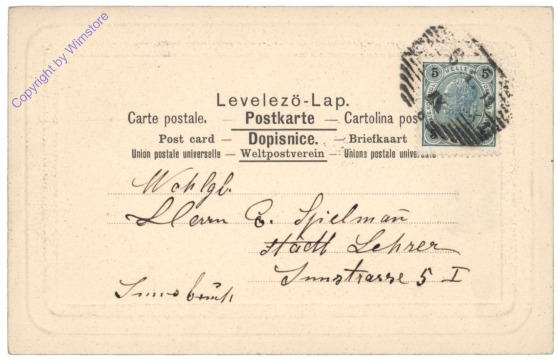 Copyright by Wimstore
Levelezö-Lap.
Carte postale. — Postkarte — Cartolina pos
Post card — Dopisnice. — Briefkaart
Union postale universelle — Weltpostverein — Unions postale unive
5 HELLER 5
Wohlgb.
Herrn E. Spielman̄
städt Lehrer
Innstrasse 5 I
Innsbruck